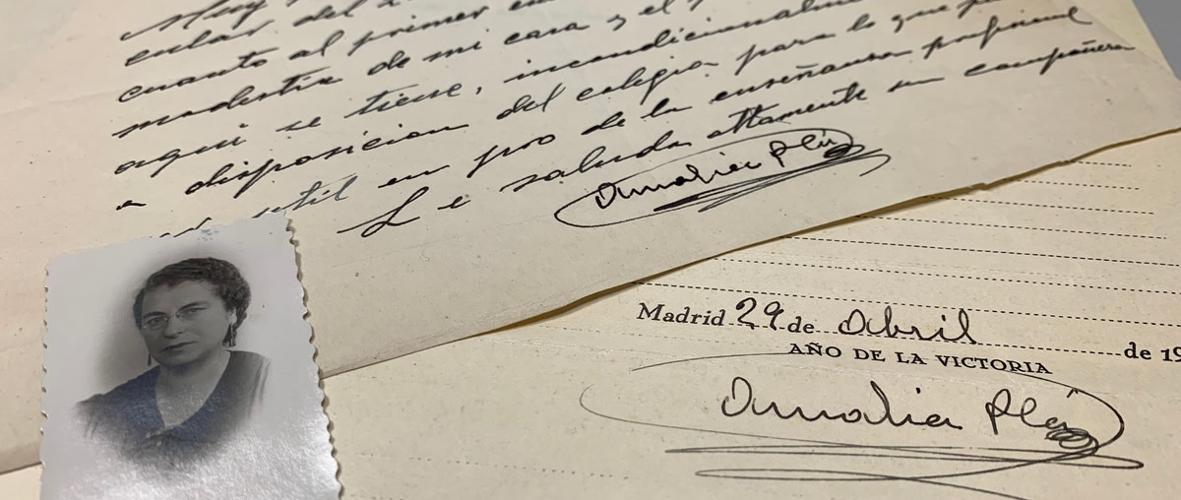 Muy
cuanto al primer
modestia de mi casa y el
aqui se tiene, incondicionalm
a disposicion del colegio para lo que
util en pro de la enseñanza profesional
Le saluda attamente su compañera
Amalia
Madrid 29 de Abril de 19
AÑO DE LA VICTORIA
Amalia